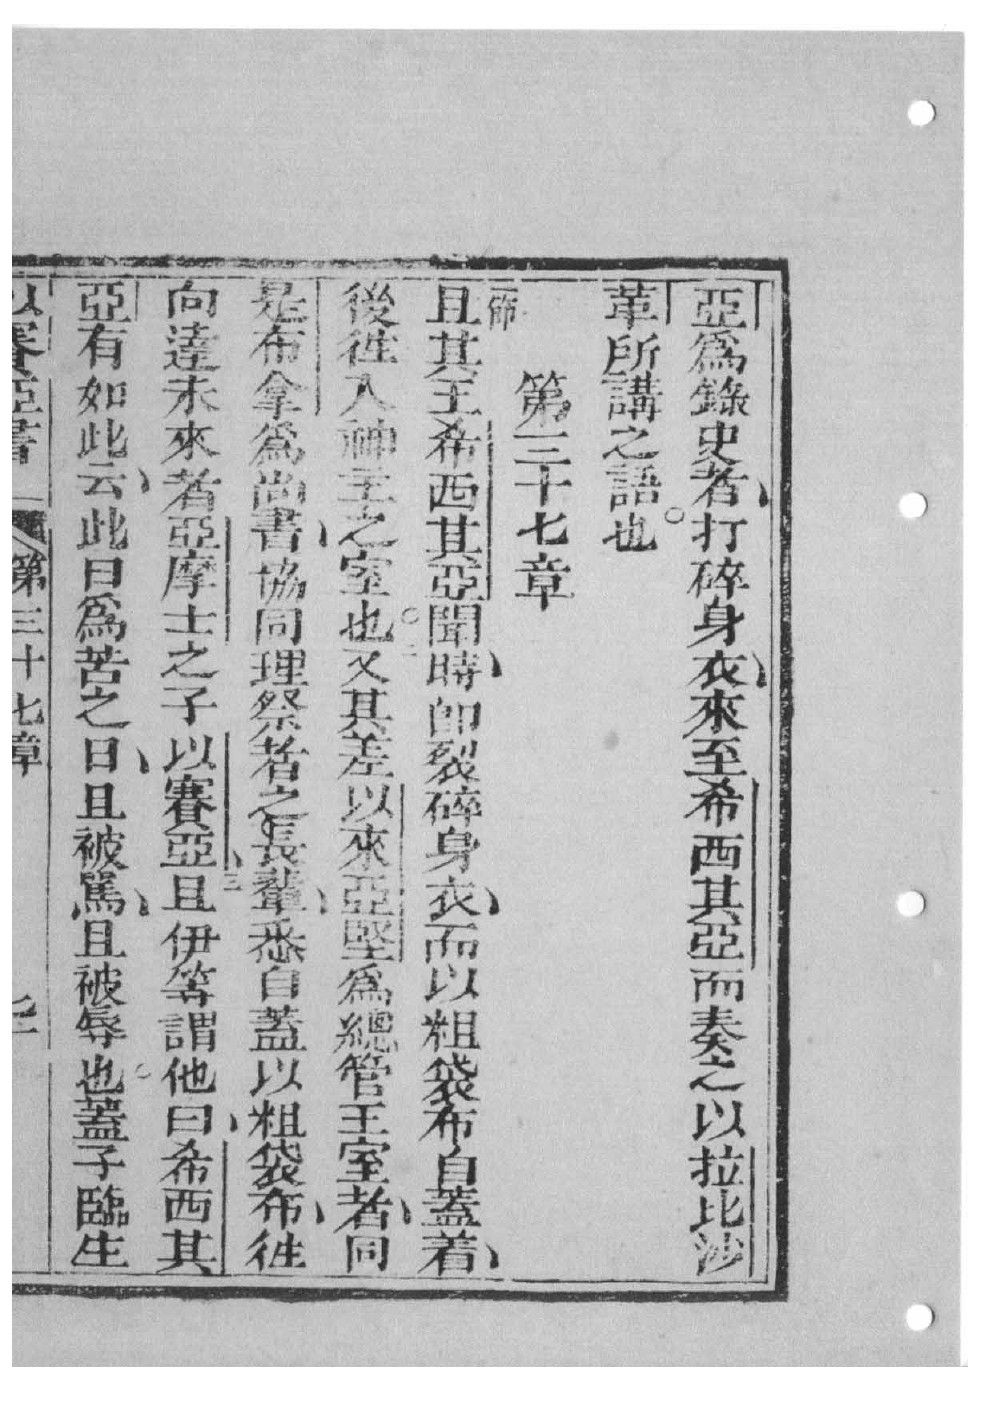 亞爲錄史者打碎身衣來至希西其亞而奏之以拉比沙
革所講之語也
第三十七章
一節
且其王希西其亞聞時卽裂碎身衣而以粗袋布自蓋着
後徃入神主之室也二又其差以來亞堅爲總管王室者同
是布拿爲尚書協同理祭者之長輩悉自蓋以粗袋布徃
向達未來者亞摩士之子以賽亞三且伊等謂他曰希西其
亞有如此云此日爲苦之日且被罵且被辱也蓋子臨生
以賽亞書
第三十七章